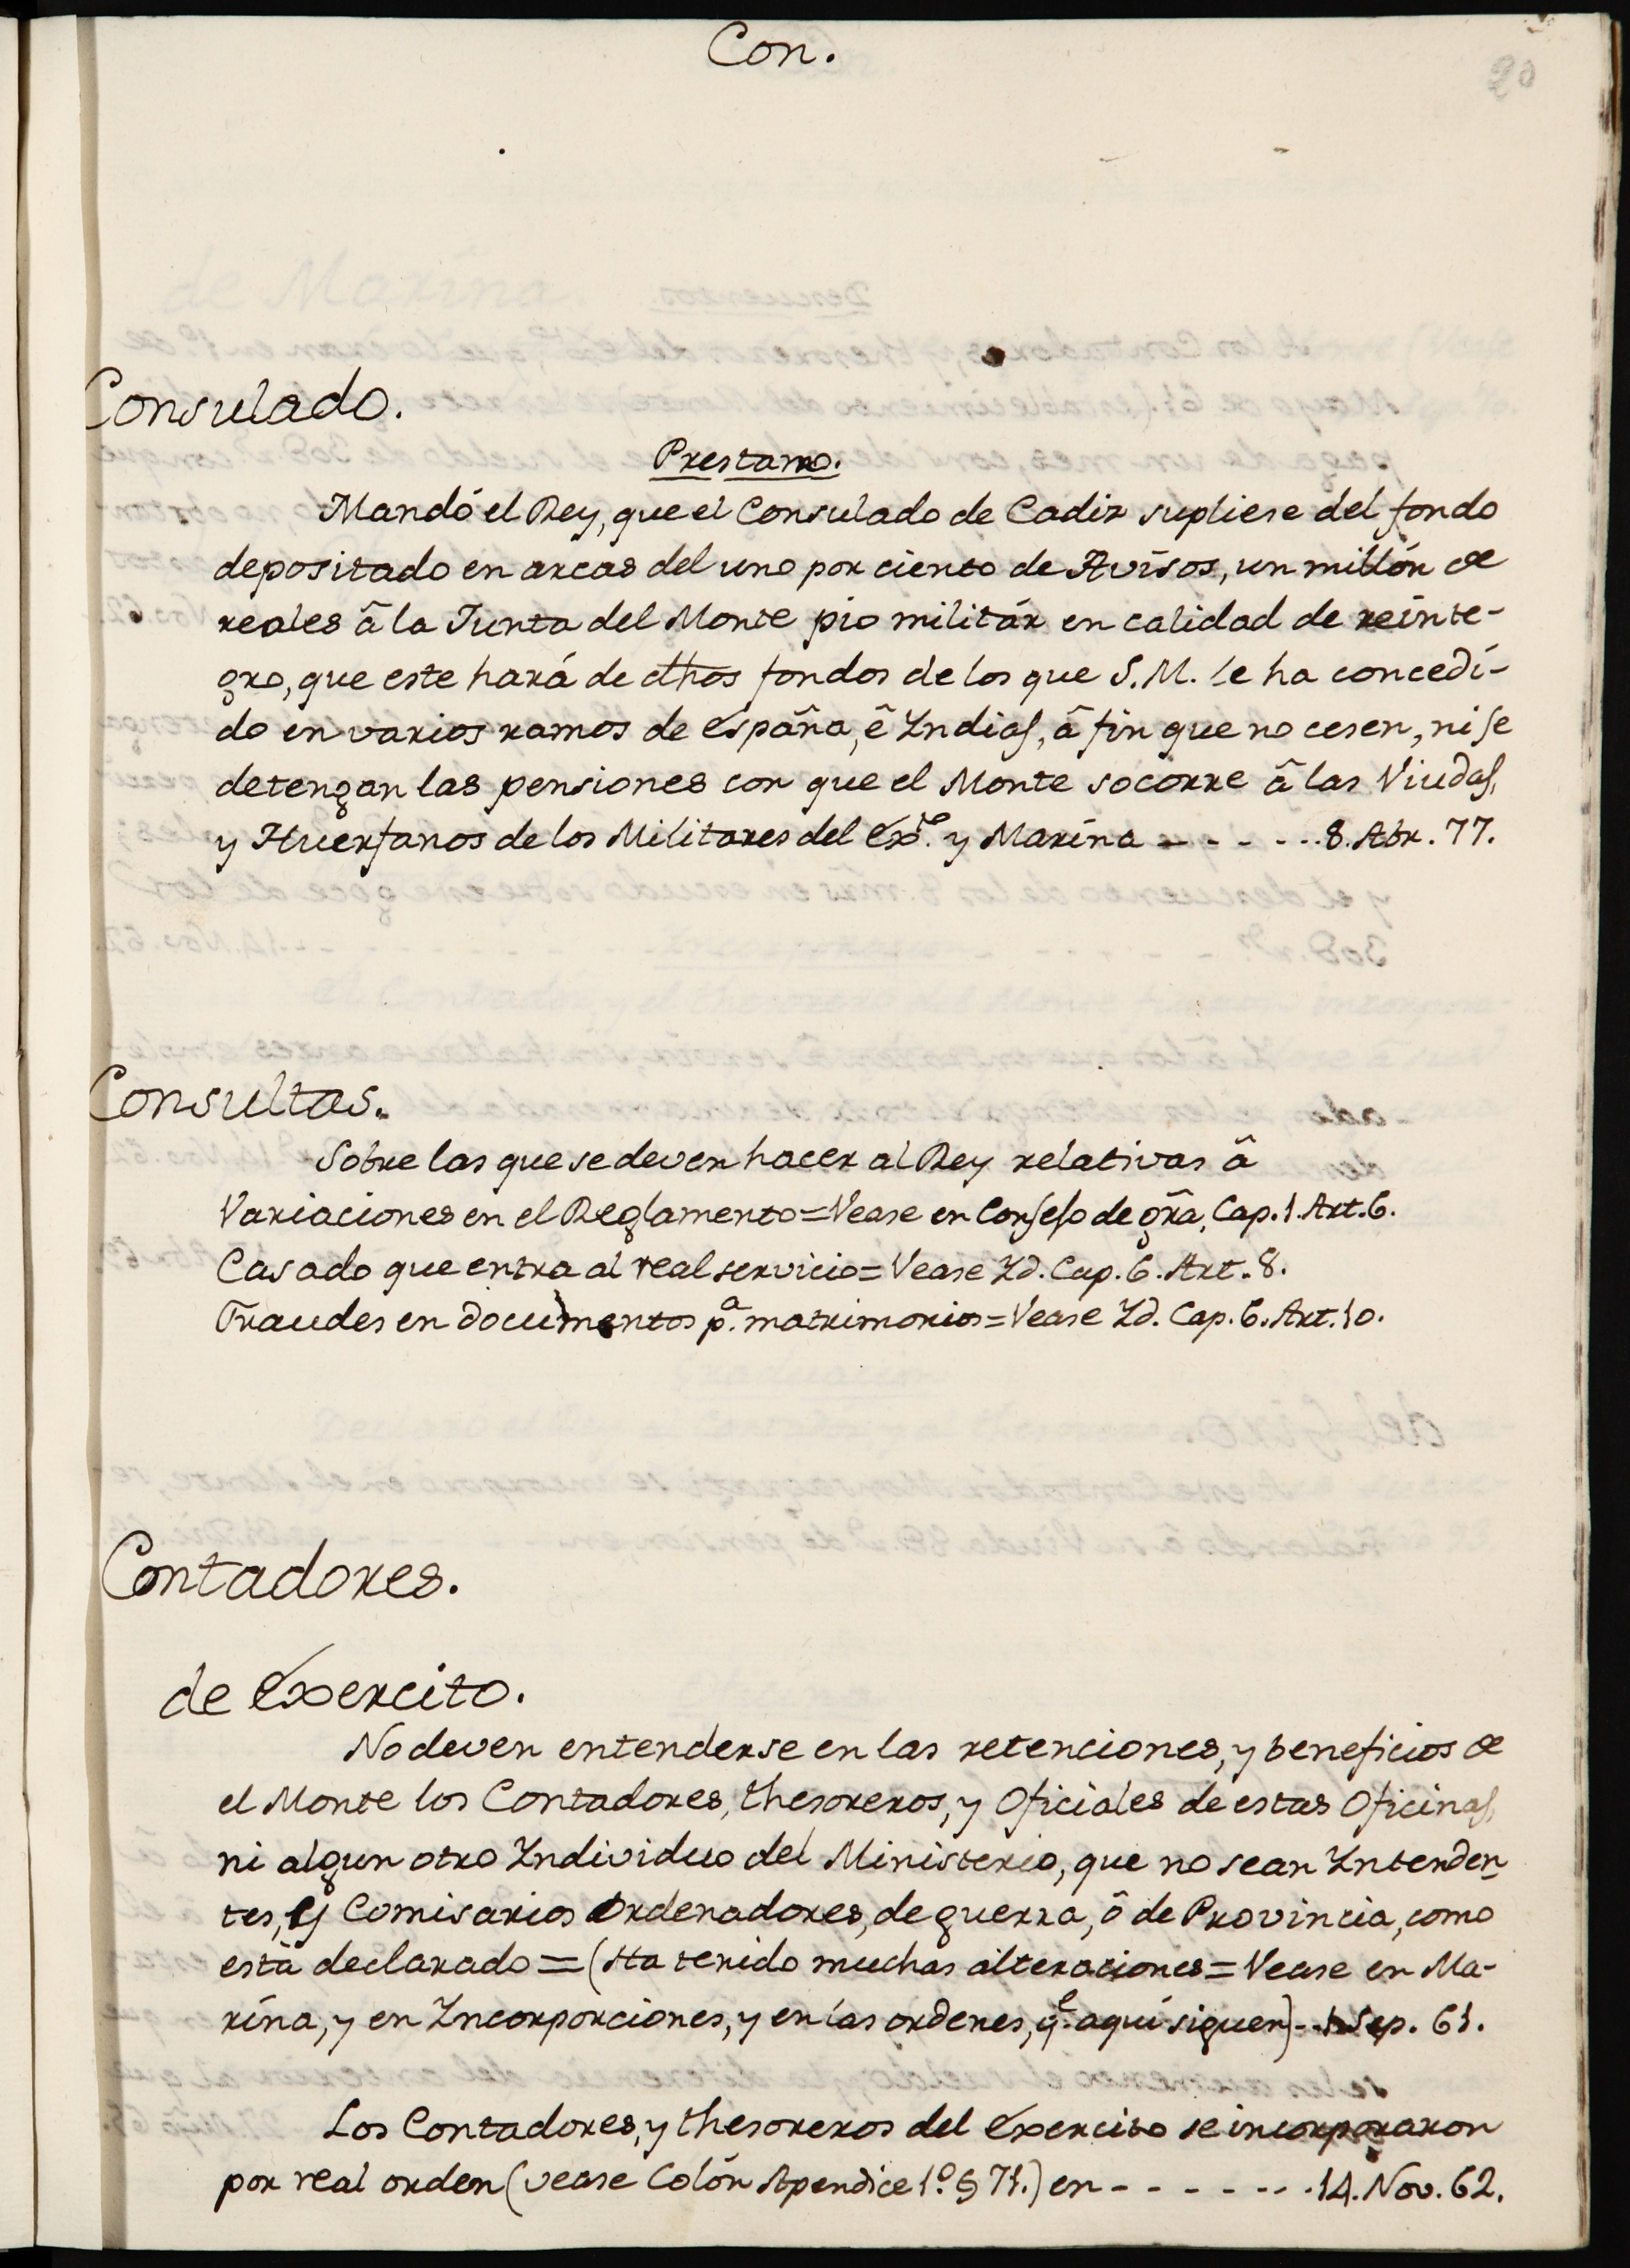 Con.
20
Consulado.
Prestamo.
Mandó el Rey, que el Consulado de Cadiz supliese del fondo
depositado en arcas del uno por ciento de Avisos, un millón de
reales â la Junta del Monte pio militár en calidad de reinte-
gro, que este hará de dhos fondos de los que S.M. le ha concedi-
do en varios ramos de españa, ê Yndias, â fin que no cesen, ni se
detengan las pensiones con que el Monte socorre â las Viudas,
y Huerfanos de los Militares del Exto. y Marina - - - - - 8. Abr. 77.
Consultas.
Sobre las que se deven hacer al Rey relativas â
Variaciones en el Reglamento = Vease en Consejo de grã, Cap. 1. Art. 6.
Casado que entra al real servicio = Vease Yd. Cap. 6. Art. 8.
Fraudes en documentos pa. matrimonios = Vease Yd. Cap. 6. Art. 10.
Contadores.
de Exercito.
No deven entenderse en las retenciones, y beneficios de
el Monte los Contadores, thesoreros, y Oficiales de estas Oficinas,
ni algun otro Yndividuo del Ministerio, que no sean Ynten den
tes, y Comisarios Ordenadores, de guerra, ô de Provincia, como
está declarado = (Ha tenido muchas alteraciones = Vease en Ma-
rina, y en Yncorporciones, y en las ordenes, qe. aqui siguen) - - Sep. 61.
Los Contadores, y thesoreros del Exercito se incorporaron
por real orden (vease Colón Apendice 1º. § 71.) en - - - - - - - 14. Nov. 62.